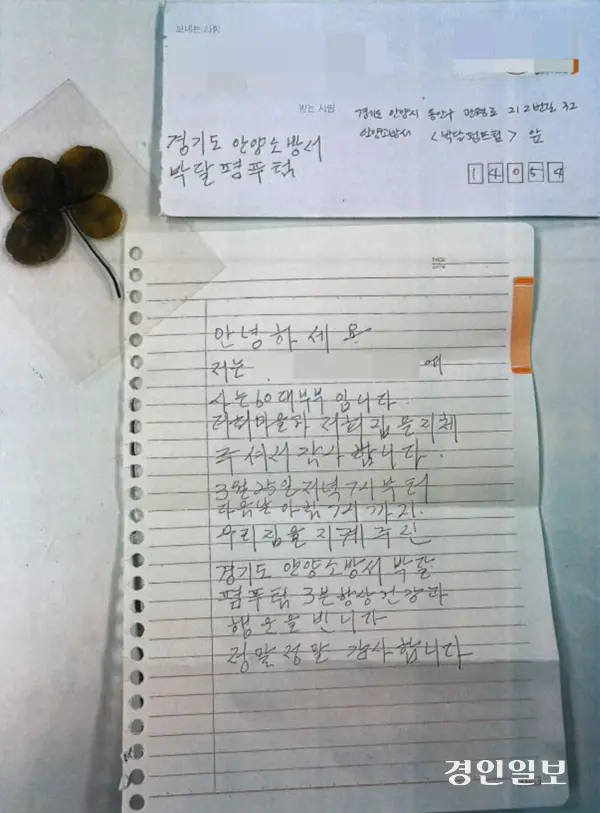 보내는 사람
받는 사람
경기도 안양시 동안구 관평로 212번길 32
안양소방서 <박달펌프팀> 앞
경기도 안양소방서
박달펌푸팀
14054
안녕하세요
저는 에
사는 60대부부 입니다
저희마을과 저희집을 지켜
주셔서 감사 합니다
3월25일 저녁7시부터
다음날 아침7시까지
우리집을 지켜주신
경기도 안양소방서 박달
펌푸팀 3분항상건강과
행운을 빕니다
정말정말 감사합니다
경인일보